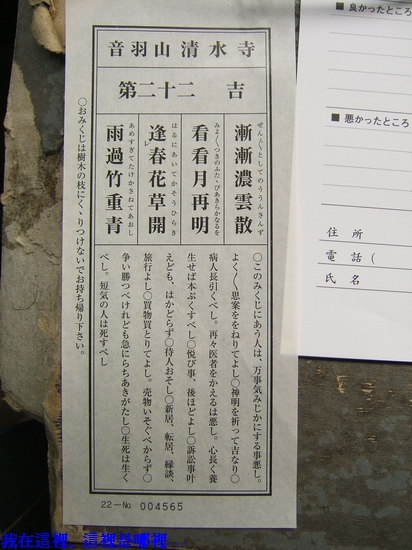 音羽山清水寺
第二十二 吉
ぜん〳〵としてのううんさんず
漸漸濃雲散
みよ〳〵つきのふたゝびあきらかなるを
看看月再明
はるにあいてかそうひらき
逢レ春花草開
あめすぎてたけかさねてあおし
雨過竹重青
〇このみくじにあう人は、万事気みじかにする事悪し。
よく〳〵思案をねりてよし〇神明を祈って吉なり〇
病人長引くべし。再々医者をかえるは悪し。心長く養
生せば本ぷくすべし〇悦び事、後ほどよし〇訴訟事叶
えども、はかどらず〇待人おそし〇新居、転居、縁談、
旅行よし〇買物買とりてよし。売物いそぐべからず〇
争い勝つべけれども急にらちあきがたし〇生死は生く
べし。短気の人は死すべし
〇おみくじは樹木の枝にくゝりつけないでお持ち帰り下さい。
22—No 004565
■良かったところ
■悪かったところ
住所
電話(
氏名
我在這裡，這裡是哪裡